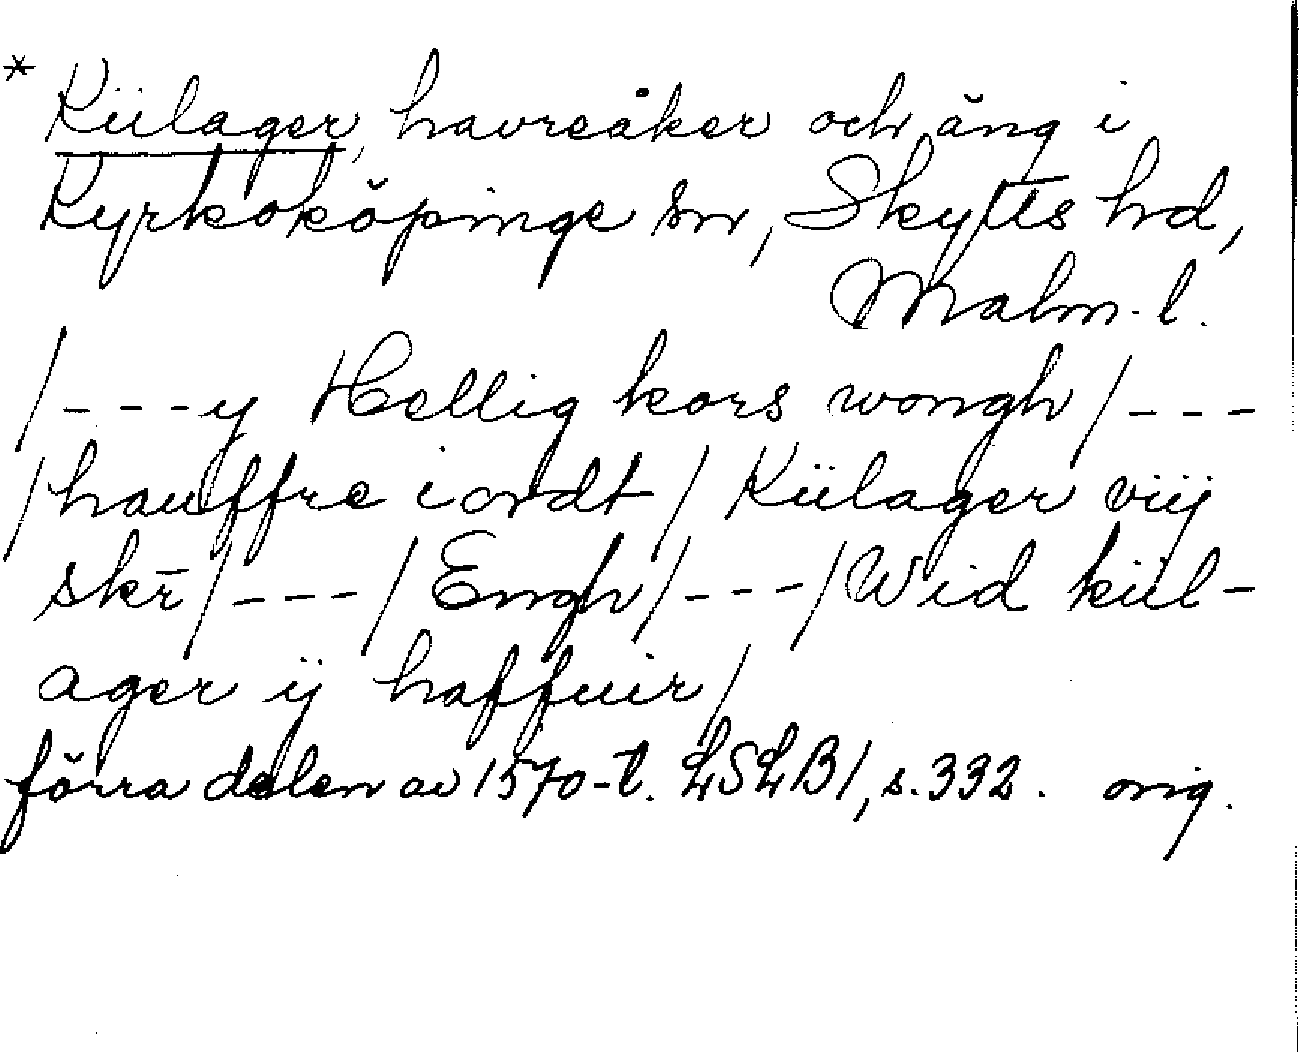 * Kiilager, havreåker och äng i
Kyrkoköpinge sn, Skytts hd,
Malm. l.
/---y Hellig kors wongh/---
/hauffre iordt/ Kiilager viij
skr̄/---/Engh/---/Wid kiil-
ager ij haffuir/
förra delen av 1570-t. LSLB1, s. 332. orig.